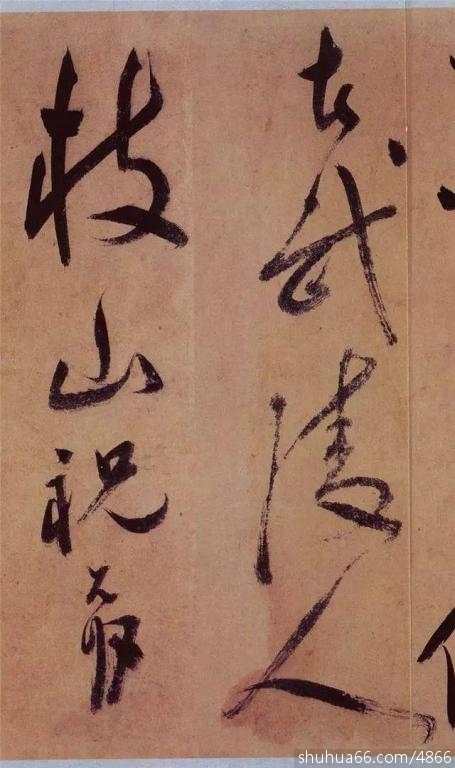 武陵人
枝山祝允明
shuhua66.com/4866